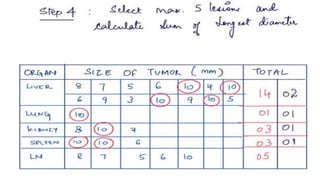 Step 4 : Select max. 5 lesions and
calculate sum of longest diameter
ORGAN SIZE OF TUMOR (mm) TOTAL
LIVER 8 7 5 6 10 4 10 14 02
6 9 3 10 9 10 5
LUNG 10 01 01
KIDNEY 8 10 7 03 01
SPLEEN 10 10 6 03 01
LN 8 7 5 6 10 05